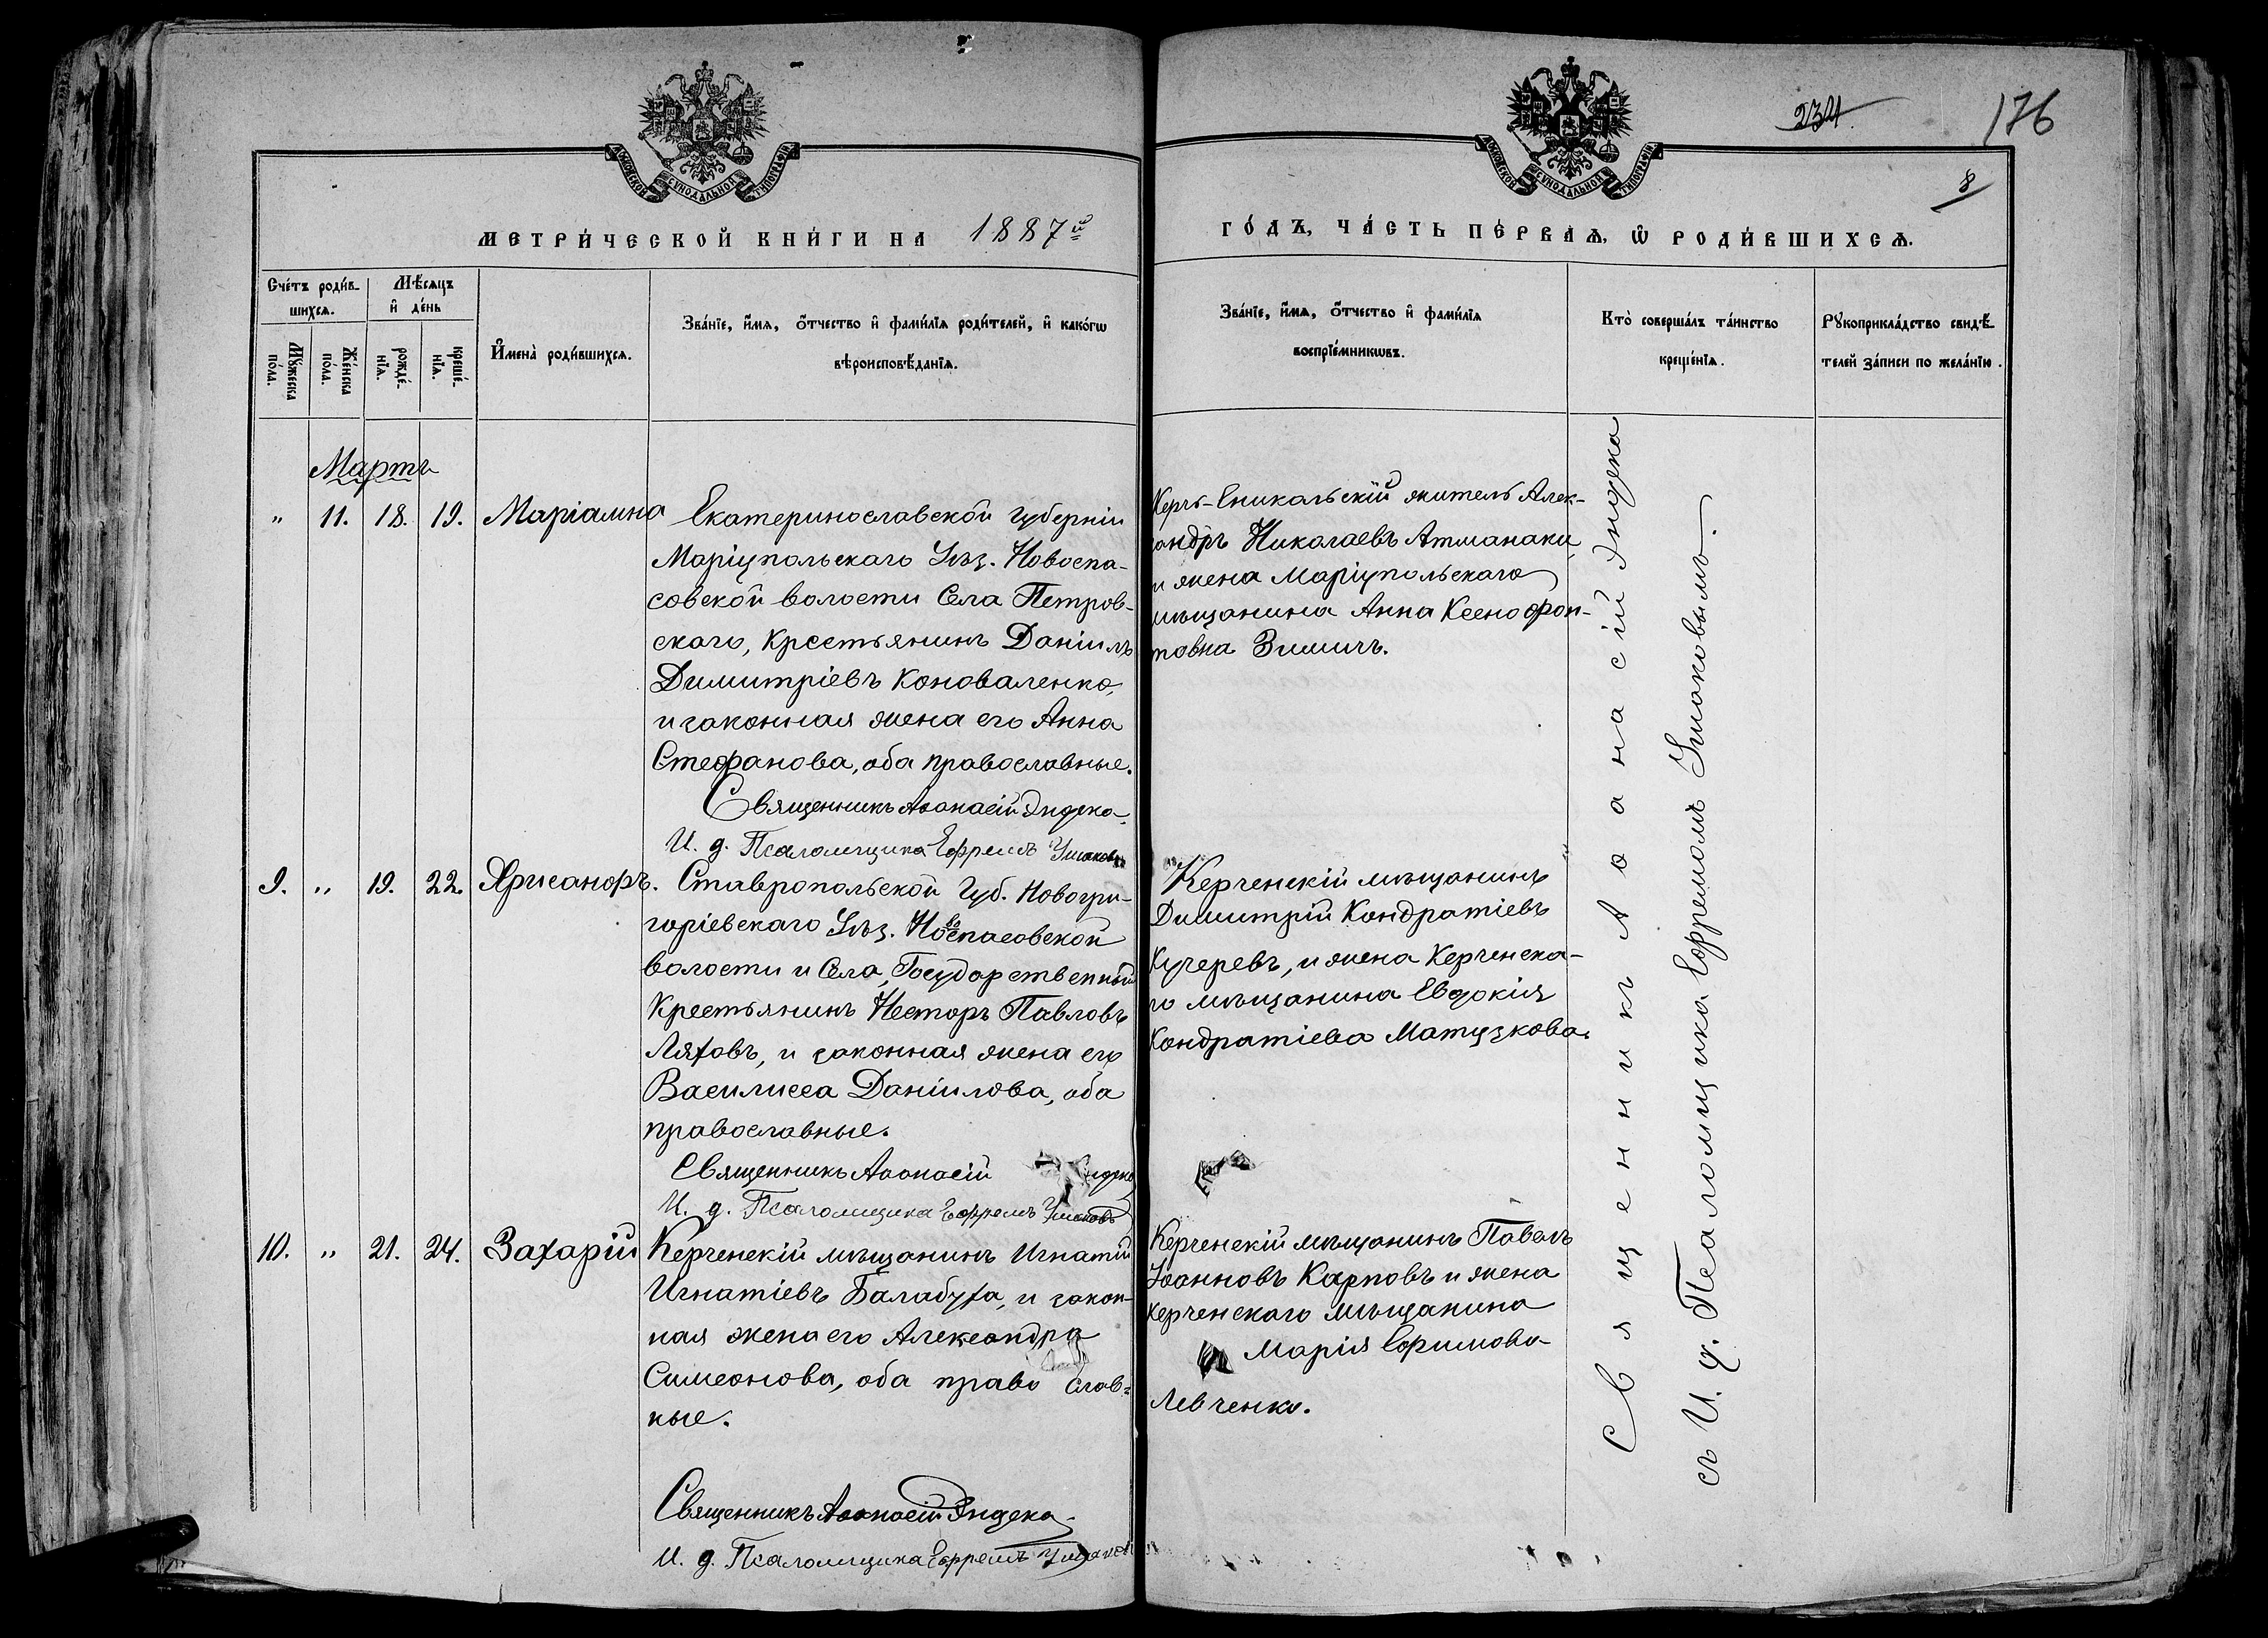 234
176
8
МОСКОВСКОЙ СѴНОДАЛЬНОЙ ТИПОГРАФІИ
МОСКОВСКОЙ СѴНОДАЛЬНОЙ ТИПОГРАФІИ
МЕТРИ́ЧЕСКОЙ КНИ́ГИ НА 1887й
ГО́ДЪ, ЧА́СТЬ ПЕ́РВАѦ, Ѡ҆ РОДИ́ВШИХСѦ.
Сче́тъ роди́в-
шихсѧ.
Мꙋ́жеска
по́ла.
Же́нска
по́ла.
Мѣ́сѧцъ
и҆ де́нь
рожде́-
нїѧ.
креще́-
нїѧ.
И҆мена̀ роди́вшихсѧ.
Зва́нїе, и҆́мѧ, о҆́тчество и҆ фами́лїѧ роди́телей, и҆ како́гѡ
вѣроисповѣ́данїѧ.
Зва́нїе, и҆́мѧ, о҆́тчество и҆ фами́лїѧ
воспрїе́мникѡвъ.
Кто̀ соверша́лъ та́инство
креще́нїѧ.
Рꙋкоприкла́дство свидѣ́-
телей за́писи по жела́нїю.
Мартъ
" 11. 18. 19. Маріамна
Екатеринославской губерніи
Маріупольскаго Уѣз. Новоспа-
совской волости Села Петров-
скаго, крестьянинъ Даніилъ
Димитріевъ Коноваленко,
и законная жена его Анна
Стефанова, оба православные.
Священникъ Аѳанасій Эндека.
И. д. Псаломщика Ефремъ Ушаковъ
Керчь-Еникальскій житель Алек-
сандръ Николаевъ Атманаки
и жена Маріупольскаго
мѣщанина Анна Ксенофон-
товна Зимичъ.
9. " 19. 22. Арисаноръ.
Ставропольской Губ. Новогри-
горіевскаго Уѣз. Новоспасовской
волости и Села, Государственный
Крестьянинъ Несторъ Павловъ
Ляховъ, и законная жена его
Василисса Даніилова, оба
православные.
Священникъ Аѳанасій Эндека
И. д. Псаломщика Ефремъ Ушаковъ
Керченскій мѣщанинъ
Димитрій Кондратіевъ
Кучеревъ, и жена Керченска-
го мѣщанина Евдокія
Кондратіева Матузкова.
10. " 21. 24. Захарій
Керченскій мѣщанинъ Игнатій
Игнатіевъ Балабуха, и закон-
ная жена его Александра
Симеонова, оба православ-
ные.
Священникъ Аѳанасій Эндека.
И. д. Псаломщика Ефремъ Ушаковъ
Керченскій мѣщанинъ Павелъ
Іоанновъ Карповъ и жена
Керченскаго мѣщанина
Марія Ефимова
Левченко.
Священникъ Аѳанасій Эндека
съ И. д. Псаломщика Ефремомъ Ушаковымъ.